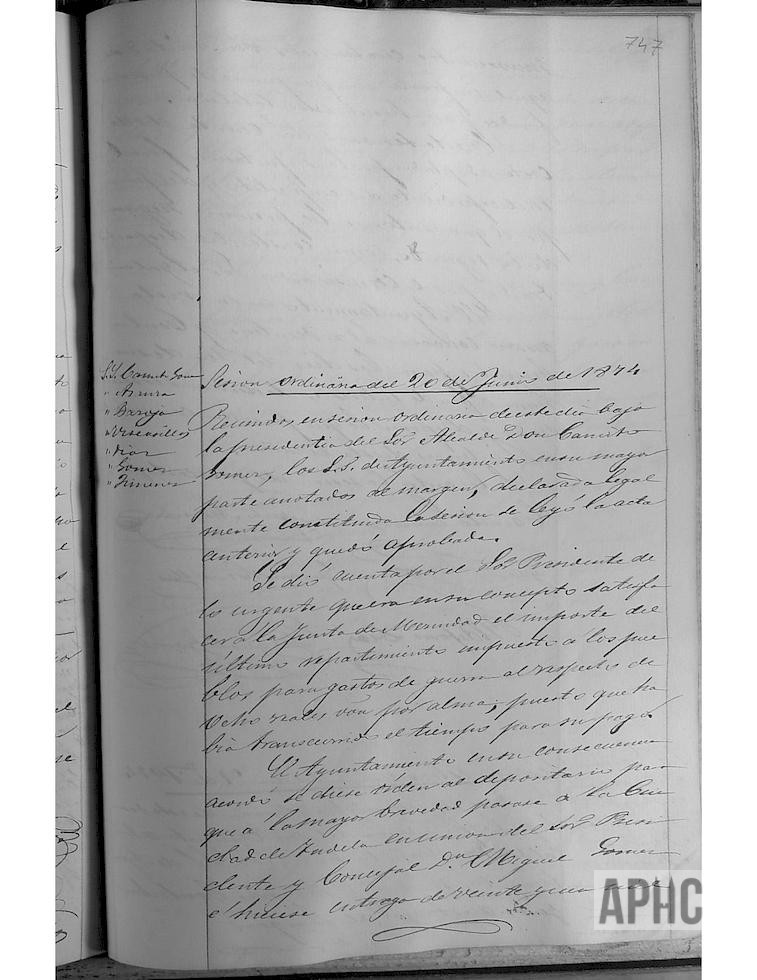 747
S.S. Camilo Gomez
" Azura
" Baroja
" Viscasillas
" Diaz
" Gomez
" Jimenez
Sesion ordinaria del 20 de Junio de 1874
Reunidos en sesion ordinaria de este dia bajo
la presidencia del Sor. Alcalde Don Camilo
Gomez, los S.S. de Ayuntamiento en su mayor
parte anotados al margen, declarada legal
mente constituida la sesion se leyó la acta
anterior y quedó aprobada.
Se dió cuenta por el Sor. Presidente de
lo urgente que era en su concepto satisfa
cer a la Junta de Merindad el importe del
último repartimiento impuesto a los pue
blos para gastos de guerra al respecto de
ocho reales von por alma, puesto que ha
bia transcurrido el tiempo para su pago.
El Ayuntamiento en su consecuencia
acordó se diese órden al depositario para
que á la mayor brevedad pasase a la Ciu
dad de Tudela en union del Sor. Presi
dente y Concejal Dn. Miguel Gomez
é hiciese entrega de veinte y un mil
APHC